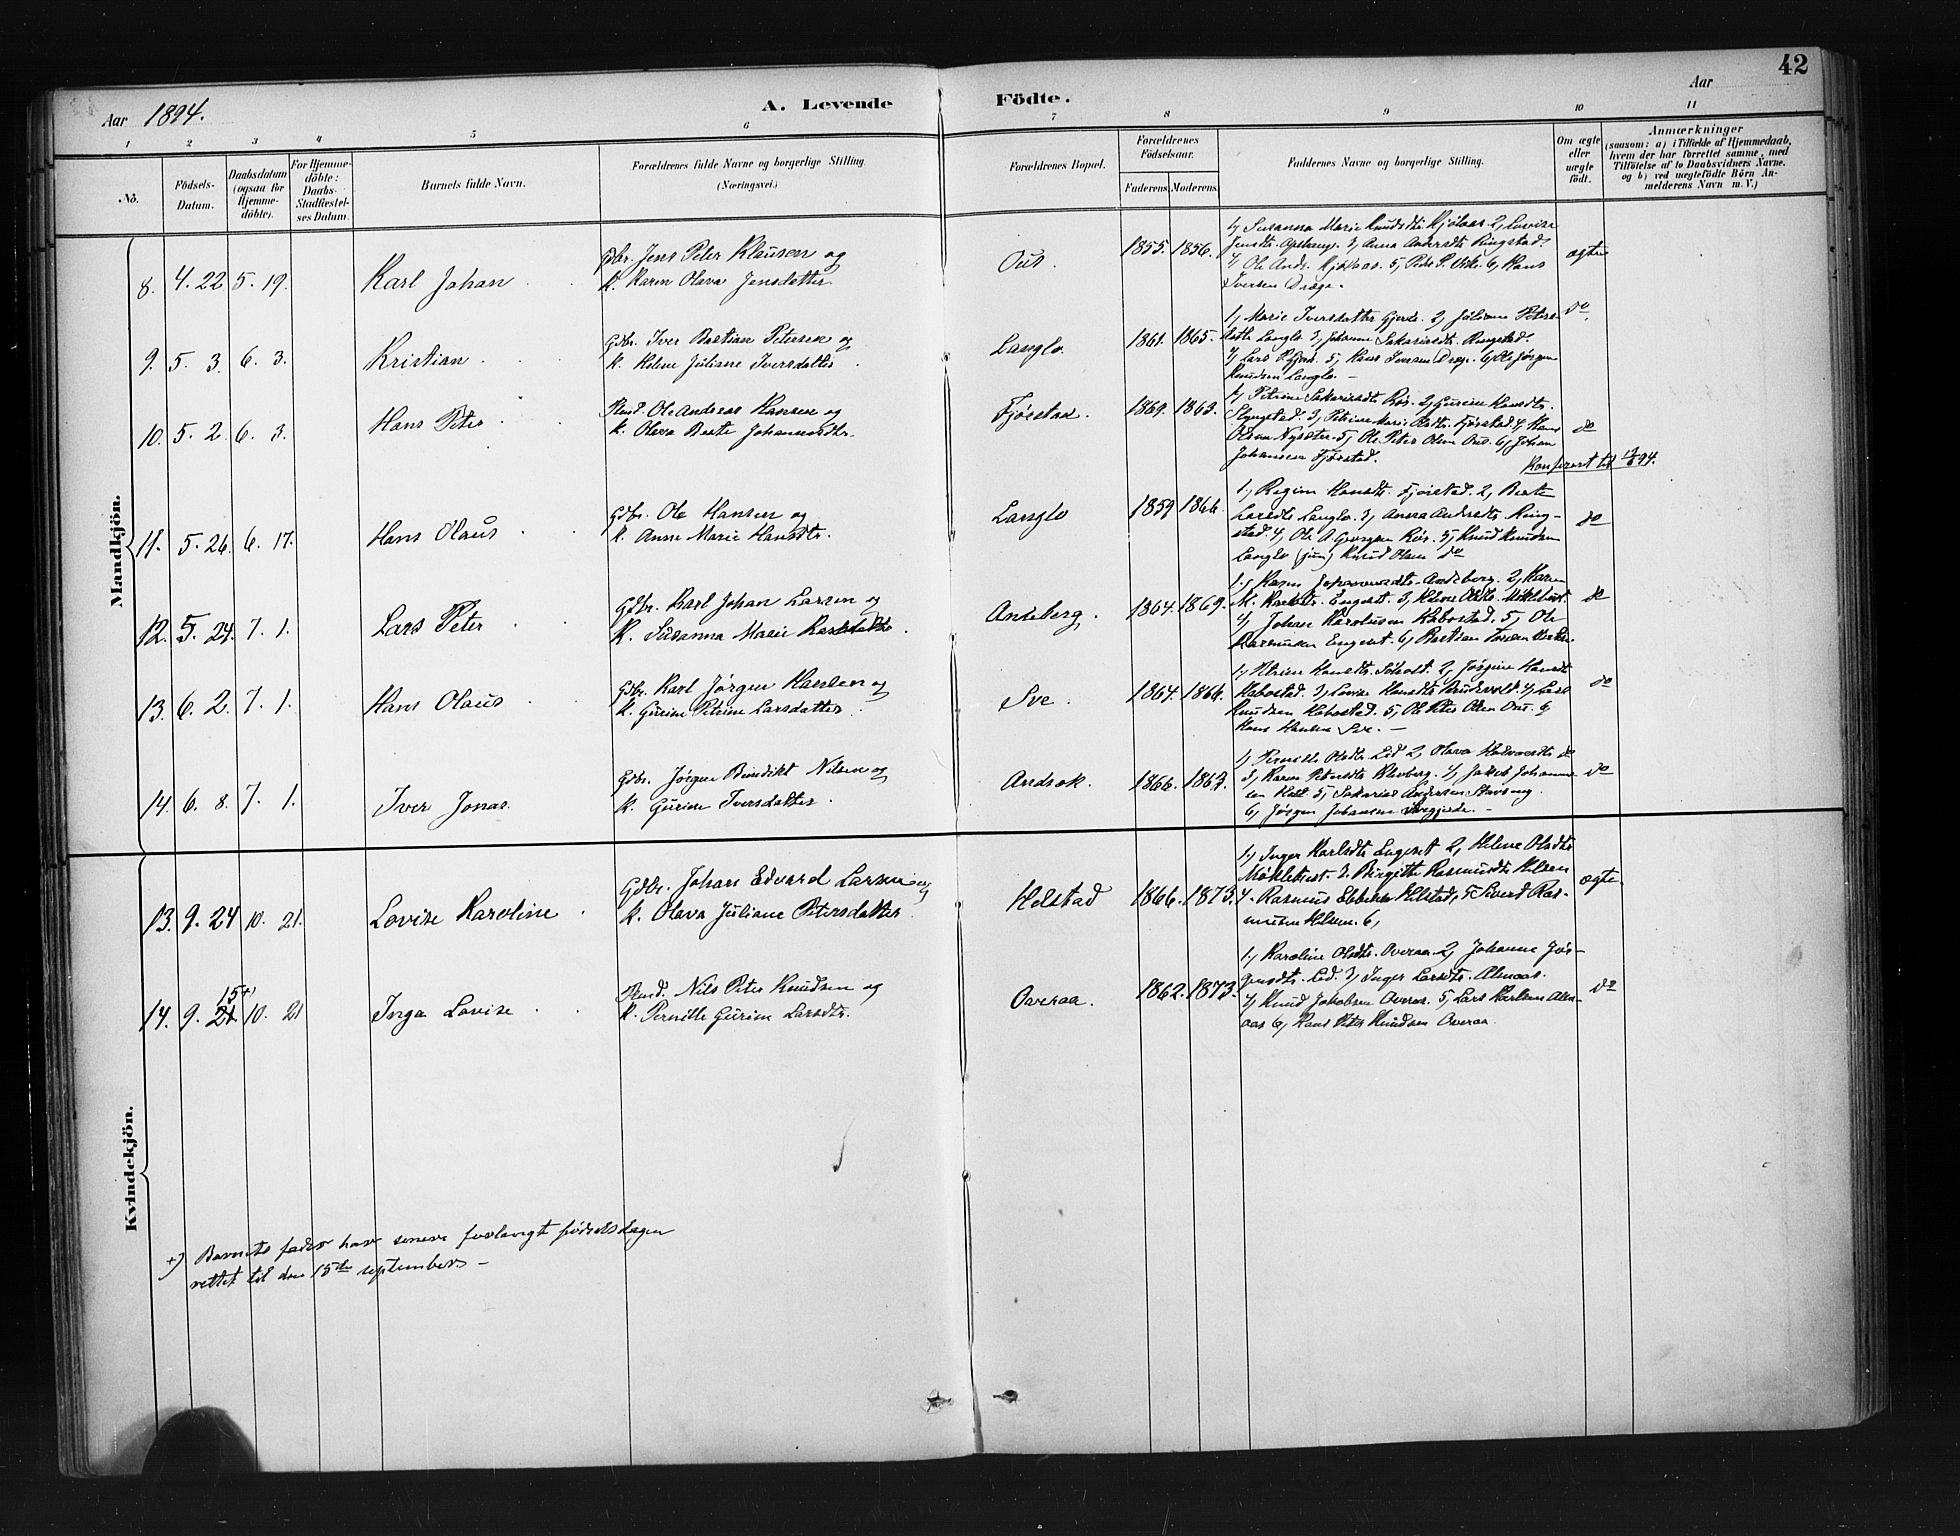 42
Aar 1894.
A. Levende Födte.
Aar
1 2 3 4 5 6 7 8 9 10 11
No.
Födsels-Datum.
Daabsdatum (ogsaa for Hjemme-döbte).
For Hjemme-döbte: Daabs-Stadfæstel-ses Datum.
Barnets fulde Navn.
Forældrenes fulde Navne og borgerlige Stilling. (Næringsvei.)
Forældrenes Bopæl.
Forældrenes Födselsaar.
Faderens. Moderens.
Faddernes Navne og borgerlige Stilling.
Om ægte eller uægte födt.
Anmærkninger
(saasom: a) i Tilfælde af Hjemmedaab, hvem der har forrettet samme, med Tilföielse af to Daabsvidners Navne. og b) ved uægtefödte Börn An-melderens Navn m. V.)
Mandkjön.
8. 4. 22 5. 19. Karl Johan
Gdbr. Jens Peter Klausen og
k. Karen Olava Jensdatter
Ous. 1855. 1856.
1, Susanna Marie Knudsdtr. 2, Lovise
Jensdtr. 3, Anna Andersdtr. Ringstad.
4, Ole Ands. 5, Peder P. 6, Hans
Iversen Drage.
ægte
9. 5. 3. 6. 3. Kristian
Gdbr. Iver Bastian Petersen og
k. Helene Juliane Iversdatter
Langlo. 1861. 1865.
1, Marie Iversdatter Gjerde. 2, Juliane Peters-
datter Langlo. 3, Johanne Sakariasdtr. Ringstad.
4, Lars 5, Hans Iversen Drage. 6, Ole Jørgen
Knudsen Langlo. —
do.
10. 5. 2. 6. 3. Hans Peter
Ole Andreas Hansen og
k. Olava Berte Johannesdtr.
Fjørstad. 1869. 1863.
1, Petrine Sakariasdtr. Rør. 2, Gurine Hansdtr.
Slyngstad. 3, Petrine Marie Olsdtr. Fjørstad. 4, Hans
Olsen Nysæter. 5, Ole Peter Olsen Ous. 6, Johan
Johansen Fjørstad.
do
Konfereret til 94.
11. 5. 26. 6. 17. Hans Olaus
Gdbr. Ole Hansen og
k. Anne Marie Hansdtr.
Langlo 1859 1866.
1, Regine Hansdtr. Fjørstad. 2, Berte
Larsdtr. Langlo. 3, Anna Andersdtr. Ring-
stad. 4, Ole A. Rør. 5, Knud Knudsen
Langlo (jun) Knud Olsen do
do
12. 5. 24. 7. 1. Lars Peter
Gdbr. Karl Johan Larsen og
k. Susanna Marie
Andeberg. 1864. 1869.
1, Karen Johannesdtr. Andeberg. 2, Karen
M. Engeset. 3, Helene Olsdtr.
4, Johan Habostad. 5, Ole
Rasmussen Engeset. 6, Bastian
do
13. 6. 2. 7. 1. Hans Olaus
Gdbr. Karl Jørgen Hansen og
k. Gurine Petrine Larsdatter
Sve. 1864. 1866.
1, Petrine Hansdtr. Søholt. 2, Jørgine Hansdtr.
Habostad. 3, Lovise Hansdtr. 4, Lars
Knudsen Habostad. 5, Ole Peter Olsen Ous. 6,
Hans Hansen Sve. —
do
14. 6. 8. 7. 1. Iver Jonas
Gdbr. Jørgen Benedikt Nilsen og
k. Gurine Iversdatter
Andsok. 1866. 1863.
1, Pernille Olsdtr. Lid 2, Olava do
3, Karen Petersdtr. Klevberg. 4, Jakob Johannes-
sen 5, Sakarias Andersen Stavseng.
6, Jørgen Johansen —
do
Kvindekjön.
13. 9. 24 10. 21. Lovise Karoline
Gdbr. Johan Edvard Larsen og
k. Olava Juliane Petersdatter
Helstad 1866. 1873.
1, Inger Karlsdtr. Engeset 2, Helene Olsdtr.
Møklebust. 3. Birgitte Rasmusdtr. Helsem
4. Rasmus Ebbesen Helstad, 5 Sivert Ras-
musen Helsem. 6,
ægte
14. 9. 21 15+) 10. 21 Inga Lovise
Nils Peter Knudsen og
k. Pernille Gurine Larsdtr.
Overaa. 1862. 1873.
1, Karoline Olsdtr. Overaa. 2, Johanne Jør-
gensdtr. Lid. 3, Inger Larsdtr. Almaas.
4, Knud Jakobsen Overaa. 5, Lars Karlsen Alm-
aas 6, Hans Peter Knudsen Overaa.
do
+) Barnets fader har senere forlangt fødselsdagen
rettet til den 15de septembers —